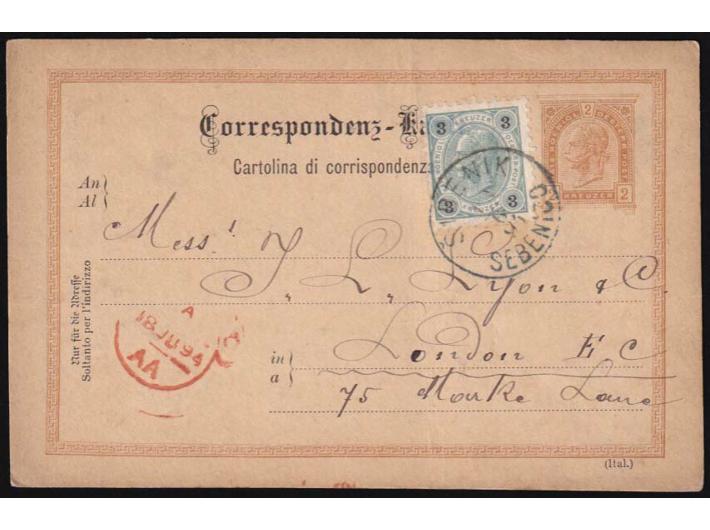 Correspondenz-Ka
Cartolina di corrispondenza
3 3
3 3
2
KREUZER 2
SEBENICO
An
Al
Mess.
J. L. Lyon & C.
London E C
in
a
75 Marke Lane
Nur für die Adresse
Soltanto per l'indirizzo
A
18 JU 94
AA
(Ital.)